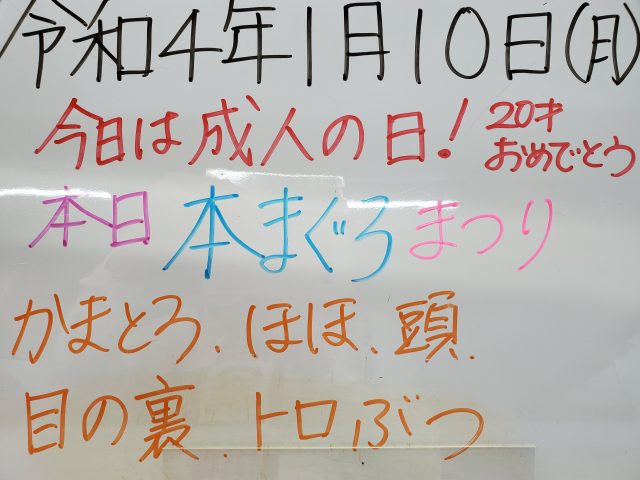 令和4年1月10日(月)
今日は成人の日! 20才おめでとう
本日本まぐろまつり
かまとろ、ほほ、頭、
目の裏、トロぶつ